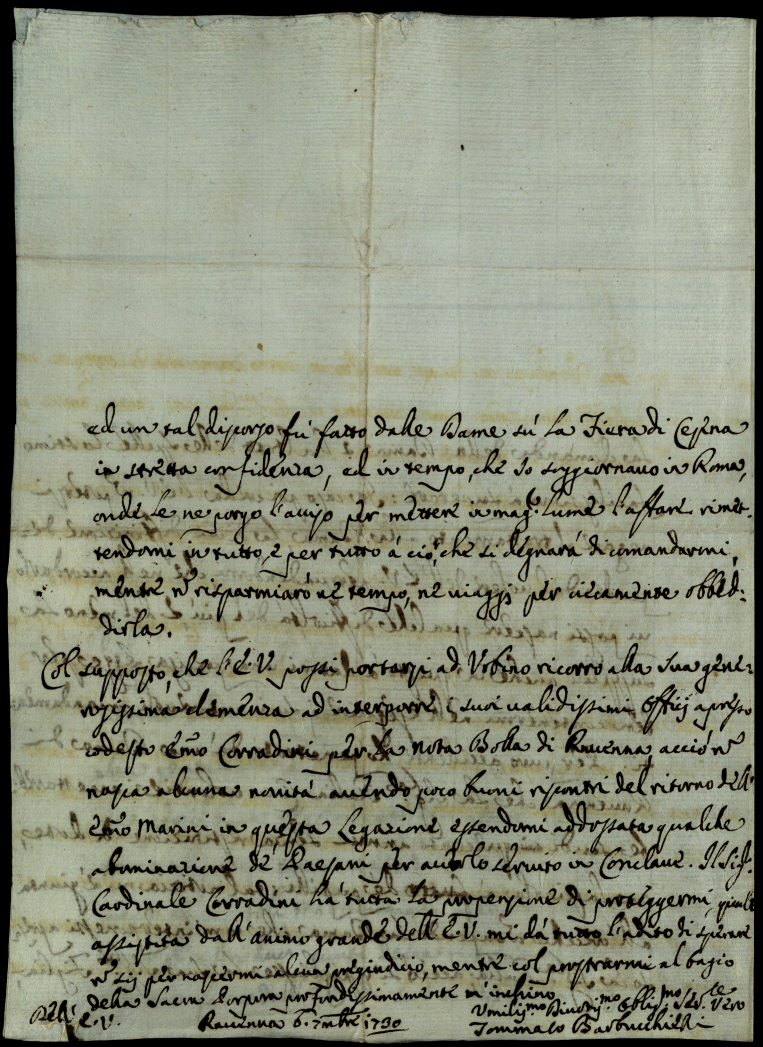 ed un tal discorso fù fatto dalle Dame sù la Fiera di Cesena
in stretta confidenza, ed in tempo, che Io soggiornavo in Roma,
onde le ne porgo l'aviso per mettere in magr. lume l'affare rimet-
tendomi in tutto, e per tutto à ciò, che si degnarà di comandarmi,
mentre nō risparmiarò ne tempo, ne viaggi per ciecamente obbed:
dirla.
Col supposto, che l'E.V. possi portarsi ad Urbino ricorro alla sua gene:
rosissima clemenza ad interporre i suoi validissimi Officij apresso
codesto Emo Corradini per la nota Bolla di Ravenna, acciò nō
nasca alcuna novità avendo poco buoni riscontri del ritorno dell'
Emo Marini in questa Legazione essendomi addossata qualche
abominazione de' Paesani per averlo servito in Conclave. Il Sigr.
Cardinale Corradini hà tutta la propensione di proteggermi, quale
assistita dall'animo grande dell'E.V. mi dà tutto l'adito di sperare
nō sij per nascermi alcun pregiudicio, mentre col prostrarmi al bagio
della Sacra Porpora profondissimamente m'inchino
Dell' E.V.
Ravenna 6. 7mbre 1730
Umilismo Divotismo Obligmo Serre Vero
Tommaso Barbucchielli